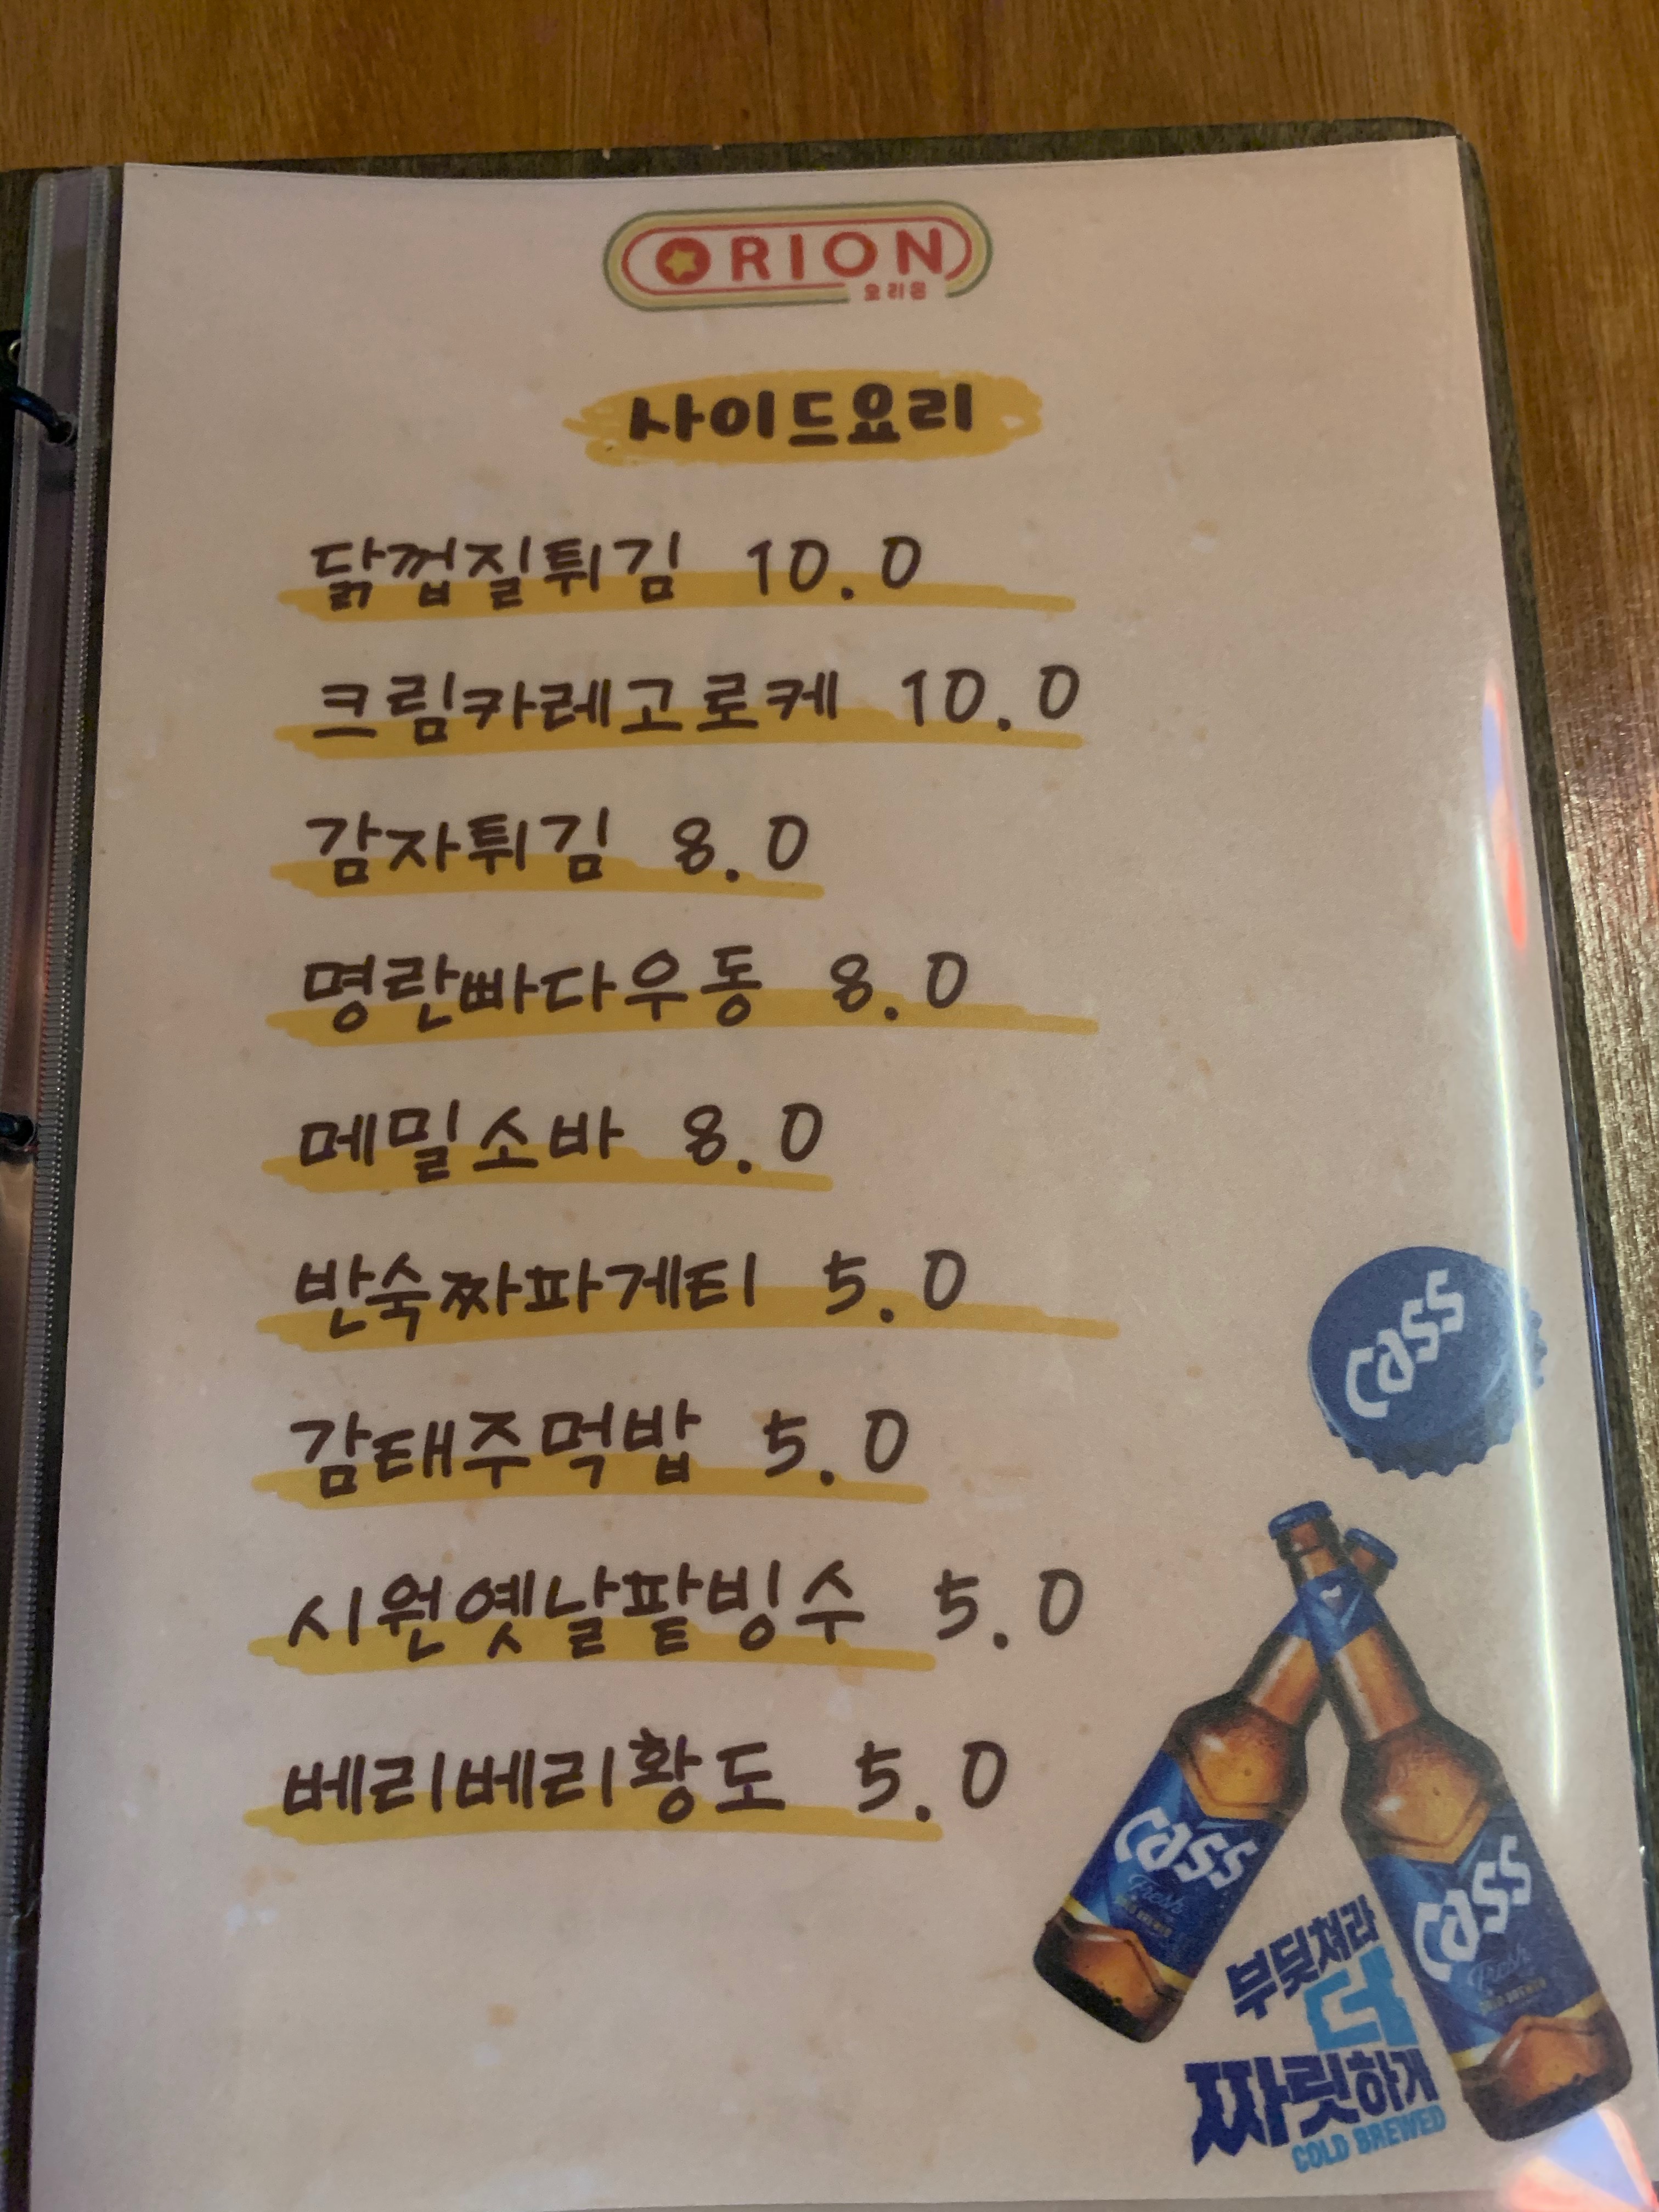 ORION
오리온
사이드요리
닭껍질튀김 10.0
크림카레고로케 10.0
감자튀김 8.0
명란빠다우동 8.0
메밀소바 8.0
반숙짜파게티 5.0
감태주먹밥 5.0
시원옛날팥빙수 5.0
베리베리황도 5.0
cass
cass
Fresh
COLD BREWED
cass
Fresh
COLD BREWED
부딪쳐라
더
짜릿하게
COLD BREWED